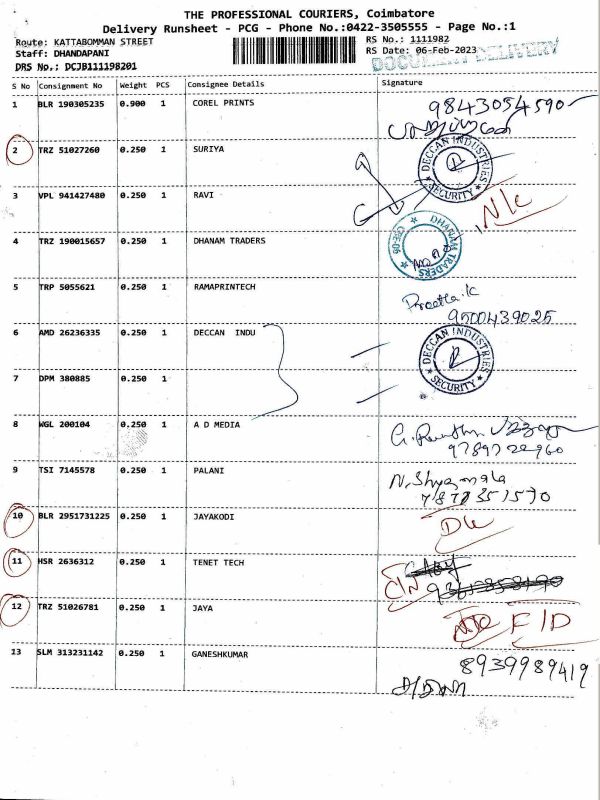 THE PROFESSIONAL COURIERS, Coimbatore
Delivery Runsheet - PCG - Phone No.:0422-3505555 - Page No.:1
Route: KATTABOMMAN STREET
RS No.: 1111982
Staff: DHANDAPANI
RS Date: 06-Feb-2023
DRS No.: DCJB111198201
DOCUMENT DELIVERY
S No Consignment No Weight PCS Consignee Details Signature
1 BLR 190305235 0.900 1 COREL PRINTS 9843054590
2 TRZ 51027260 0.250 1 SURIYA
DECCAN INDUSTRIES
SECURITY
3 VPL 941427480 0.250 1 RAVI N/c
4 TRZ 190015657 0.250 1 DHANAM TRADERS
DHANAM TRADERS
CBE-06
5 TRP 5055621 0.250 1 RAMAPRINTECH Preetha.K
9500439025
6 AMD 26236335 0.250 1 DECCAN INDU
DECCAN INDUSTRIES
SECURITY
7 DPM 380885 0.250 1
8 WGL 200104 0.250 1 A D MEDIA
9 TSI 7145578 0.250 1 PALANI N. Shyamala
7877351570
10 BLR 2951731225 0.250 1 JAYAKODI D/c
11 HSR 2636312 0.250 1 TENET TECH
12 TRZ 51026781 0.250 1 JAYA F/D
13 SLM 313231142 0.250 1 GANESHKUMAR 8939989419